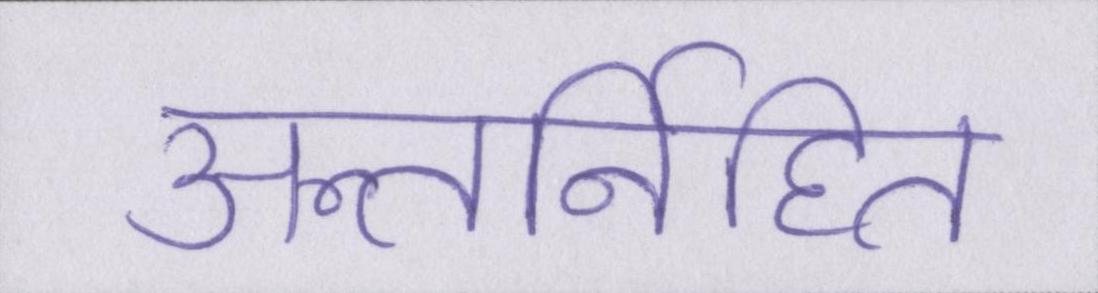 अन्तर्निहित